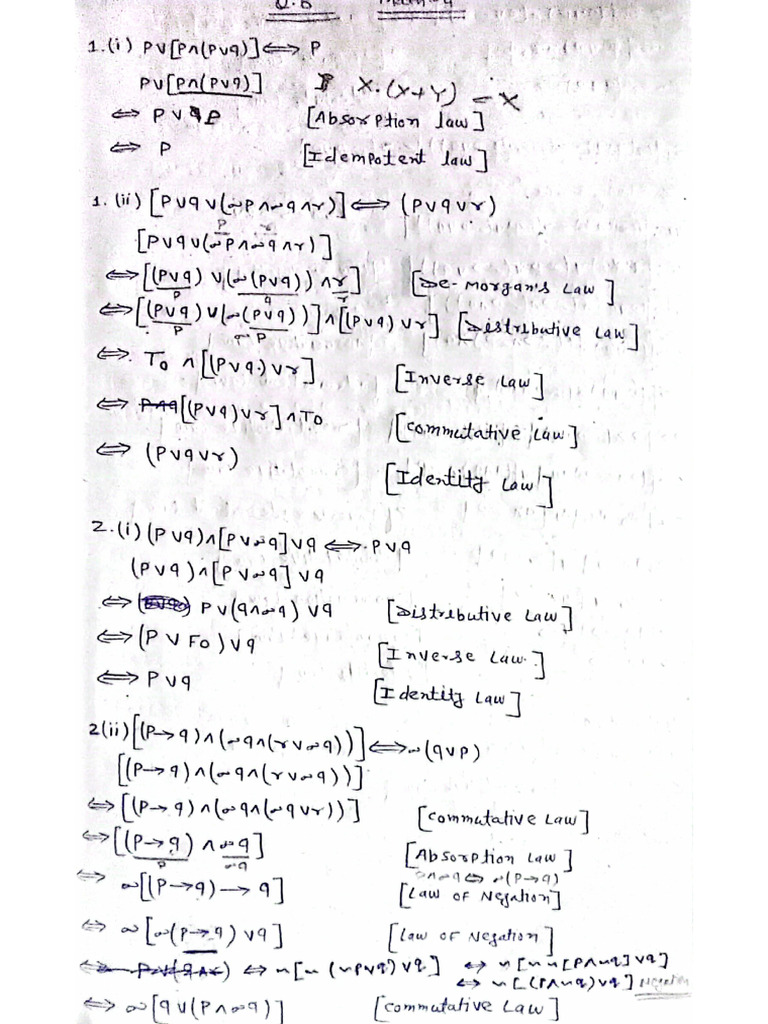 Q.B
1.(i) P∨[P∧(P∨q)]⟺ P
P∨[P∧(P∨q)] X.(X+Y) = X
⟺ P∨P [Absorption law]
⟺ P [Idempotent law]
1.(ii) [P∨q∨(~P∧~q∧r)]⟺(P∨q∨r)
[P∨q∨(~P∧~q∧r)]
⟺[(P∨q)∨(~(P∨q))∧r] [De-Morgan's Law]
⟺[(P∨q)∨(~(P∨q))]∧[(P∨q)∨r] [Distributive Law]
⟺ T₀ ∧[(P∨q)∨r] [Inverse Law]
⟺ [(P∨q)∨r]∧T₀ [Commutative Law]
⟺ (P∨q∨r) [Identity Law]
2.(i)(P∨q)∧[P∨~q]∨q⟺P∨q
(P∨q)∧[P∨~q]∨q
⟺ P∨(q∧~q)∨q [Distributive Law]
⟺(P∨F₀)∨q [Inverse Law]
⟺ P∨q [Identity Law]
2(ii)[(P→q)∧(~q∧(r∨~q))]⟺~(q∨P)
[(P→q)∧(~q∧(r∨~q))]
⟺[(P→q)∧(~q∧(~q∨r))] [Commutative Law]
⟺[(P→q)∧~q] [Absorption Law]
P ~q P∧~q⟺~(P→q)
⟺ ~[(P→q)→q] [Law of Negation]
⟺ ~[~(P→q)∨q] [Law of Negation]
⟺ ~[~(~P∨q)∨q] ⟺ ~[~~[P∧~q]∨q]
⟺ ~[(P∧~q)∨q] Negation
⟺ ~[q∨(P∧~q)] [Commutative Law]